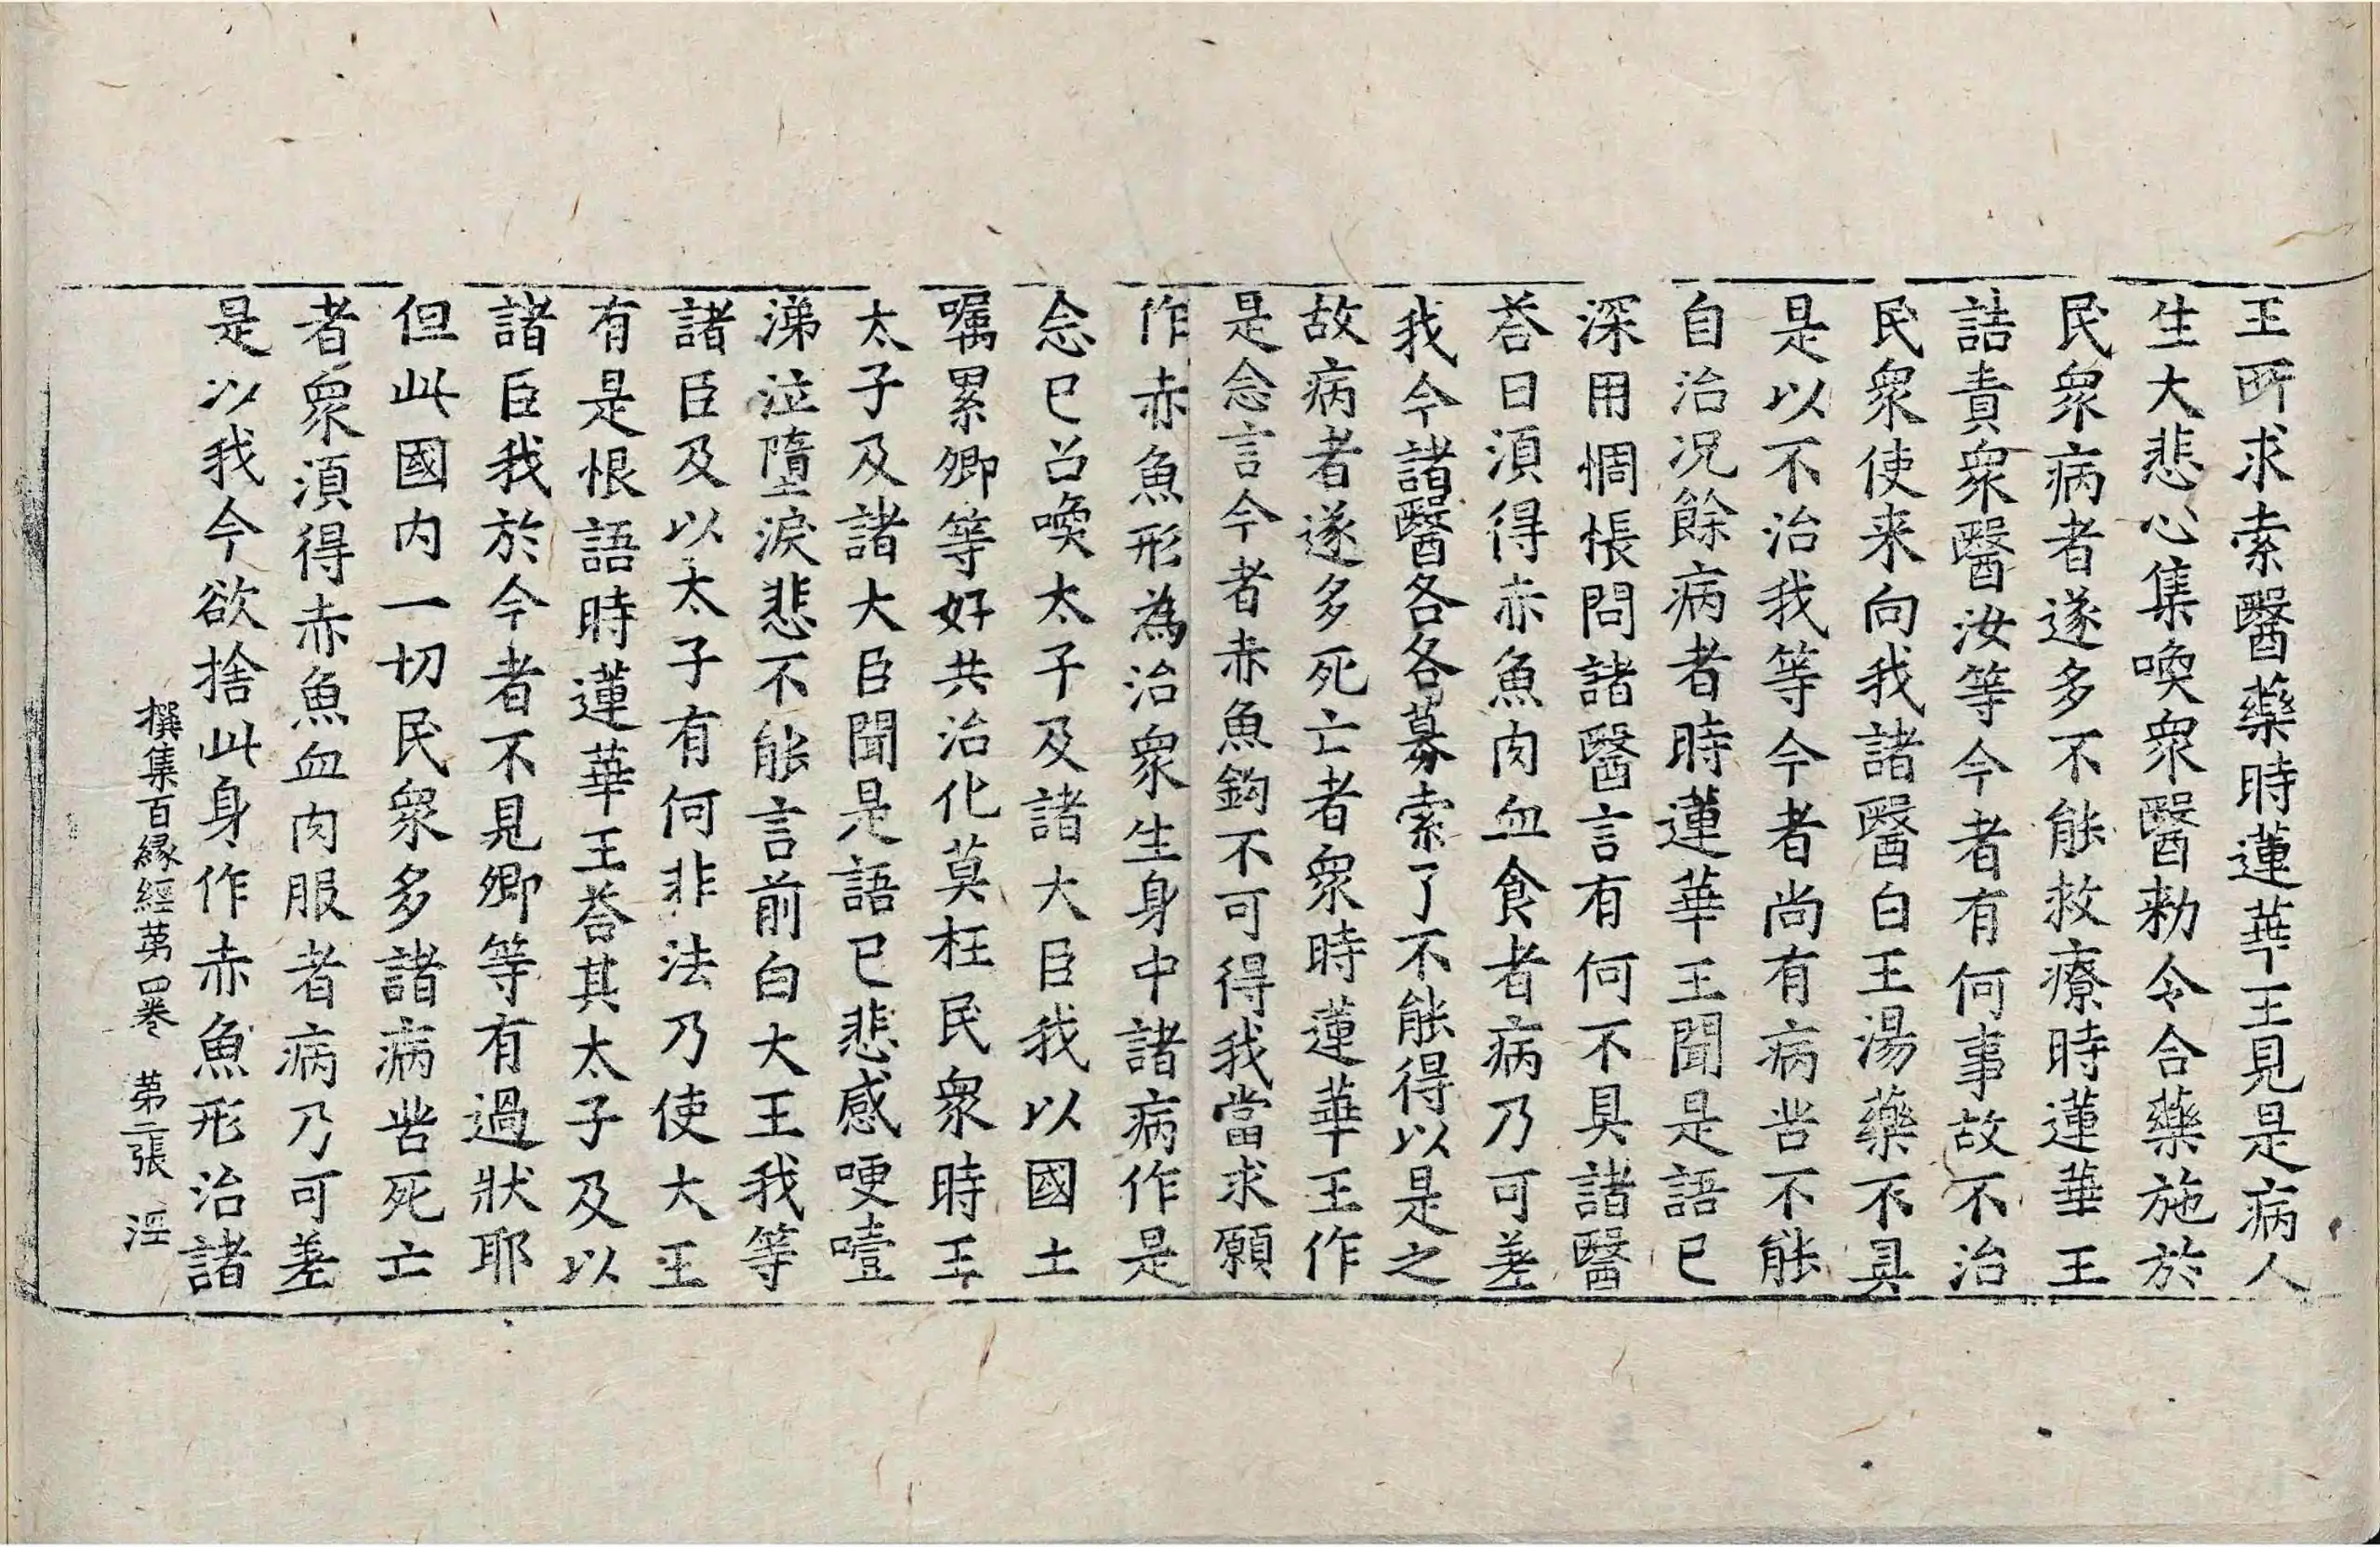 王所求索醫藥時蓮華王見是病人
生大悲心集喚衆醫勑令合藥施於
民衆病者遂多不能救療時蓮華王
詰責衆醫汝等今者有何事故不治
民衆使来向我諸醫白王湯藥不具
是以不治我等今者尚有病苦不能
自治况餘病者時蓮華王聞是語已
深用惆悵問諸醫言有何不具諸醫
荅曰湏得赤魚肉血食者病乃可差
我今諸醫各各募索了不能得以是之
故病者遂多死亡者衆時蓮華王作
是念言今者赤魚鈎不可得我當求願
作赤魚形為治衆生身中諸病作是
念已召喚太子及諸大臣我以國土
囑累卿等好共治化莫枉民衆時王
太子及諸大臣聞是語已悲感哽噎
涕泣墮淚悲不能言前白大王我等
諸臣及以太子有何非法乃使大王
有是恨語時蓮華王荅其太子及以
諸臣我於今者不見卿等有過狀耶
但此國内一切民衆多諸病苦死亡
者衆湏得赤魚血肉服者病乃可差
是以我今欲捨此身作赤魚形治諸
撰集百緣經苐四卷 苐二張 淫